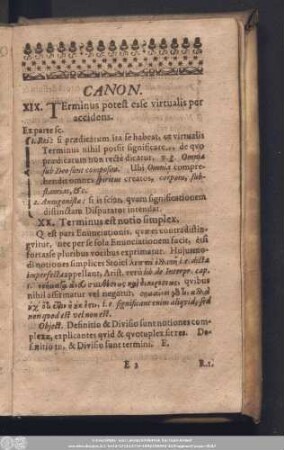 CANON.
XIX. Terminus potest esse virtualis per
accidens.
Ex parte sc.
1. Rei: si prædicatum ita se habeat, ut virtualis
Terminus nihil possit significare, de quo
prædicatum non recte dicatur. v. g. Omnia
sub Deo sunt composita. Ubi Omnia compre-
hendit omnes spiritus creatos, corpora, sub-
stantiam, &c.
2. Antagonistæ: si is sciat, quam significationem
distinctam Disputator intendat.
XX. Terminus est notio simplex,
Q. est pars Enunciationis, quæ ei contradistin-
gvitur, nec per se sola Enunciationem facit, etsi
fortasse pluribus vocibus exprimatur. Hujusmo-
di notiones simplices Stoici
imperfecta appellant, Arist. verò lib. de Interpr. cap.
1. quibus
nihil affirmatur vel negatur,
i. e. significant enim aliquid, sed
non quod est vel non est.
Object. Definitio & Divisio sunt notiones com-
plexæ, explicantes qvid & quotuplex sit res. De-
finitio tn. & Divisio sunt termini. E.
E 2